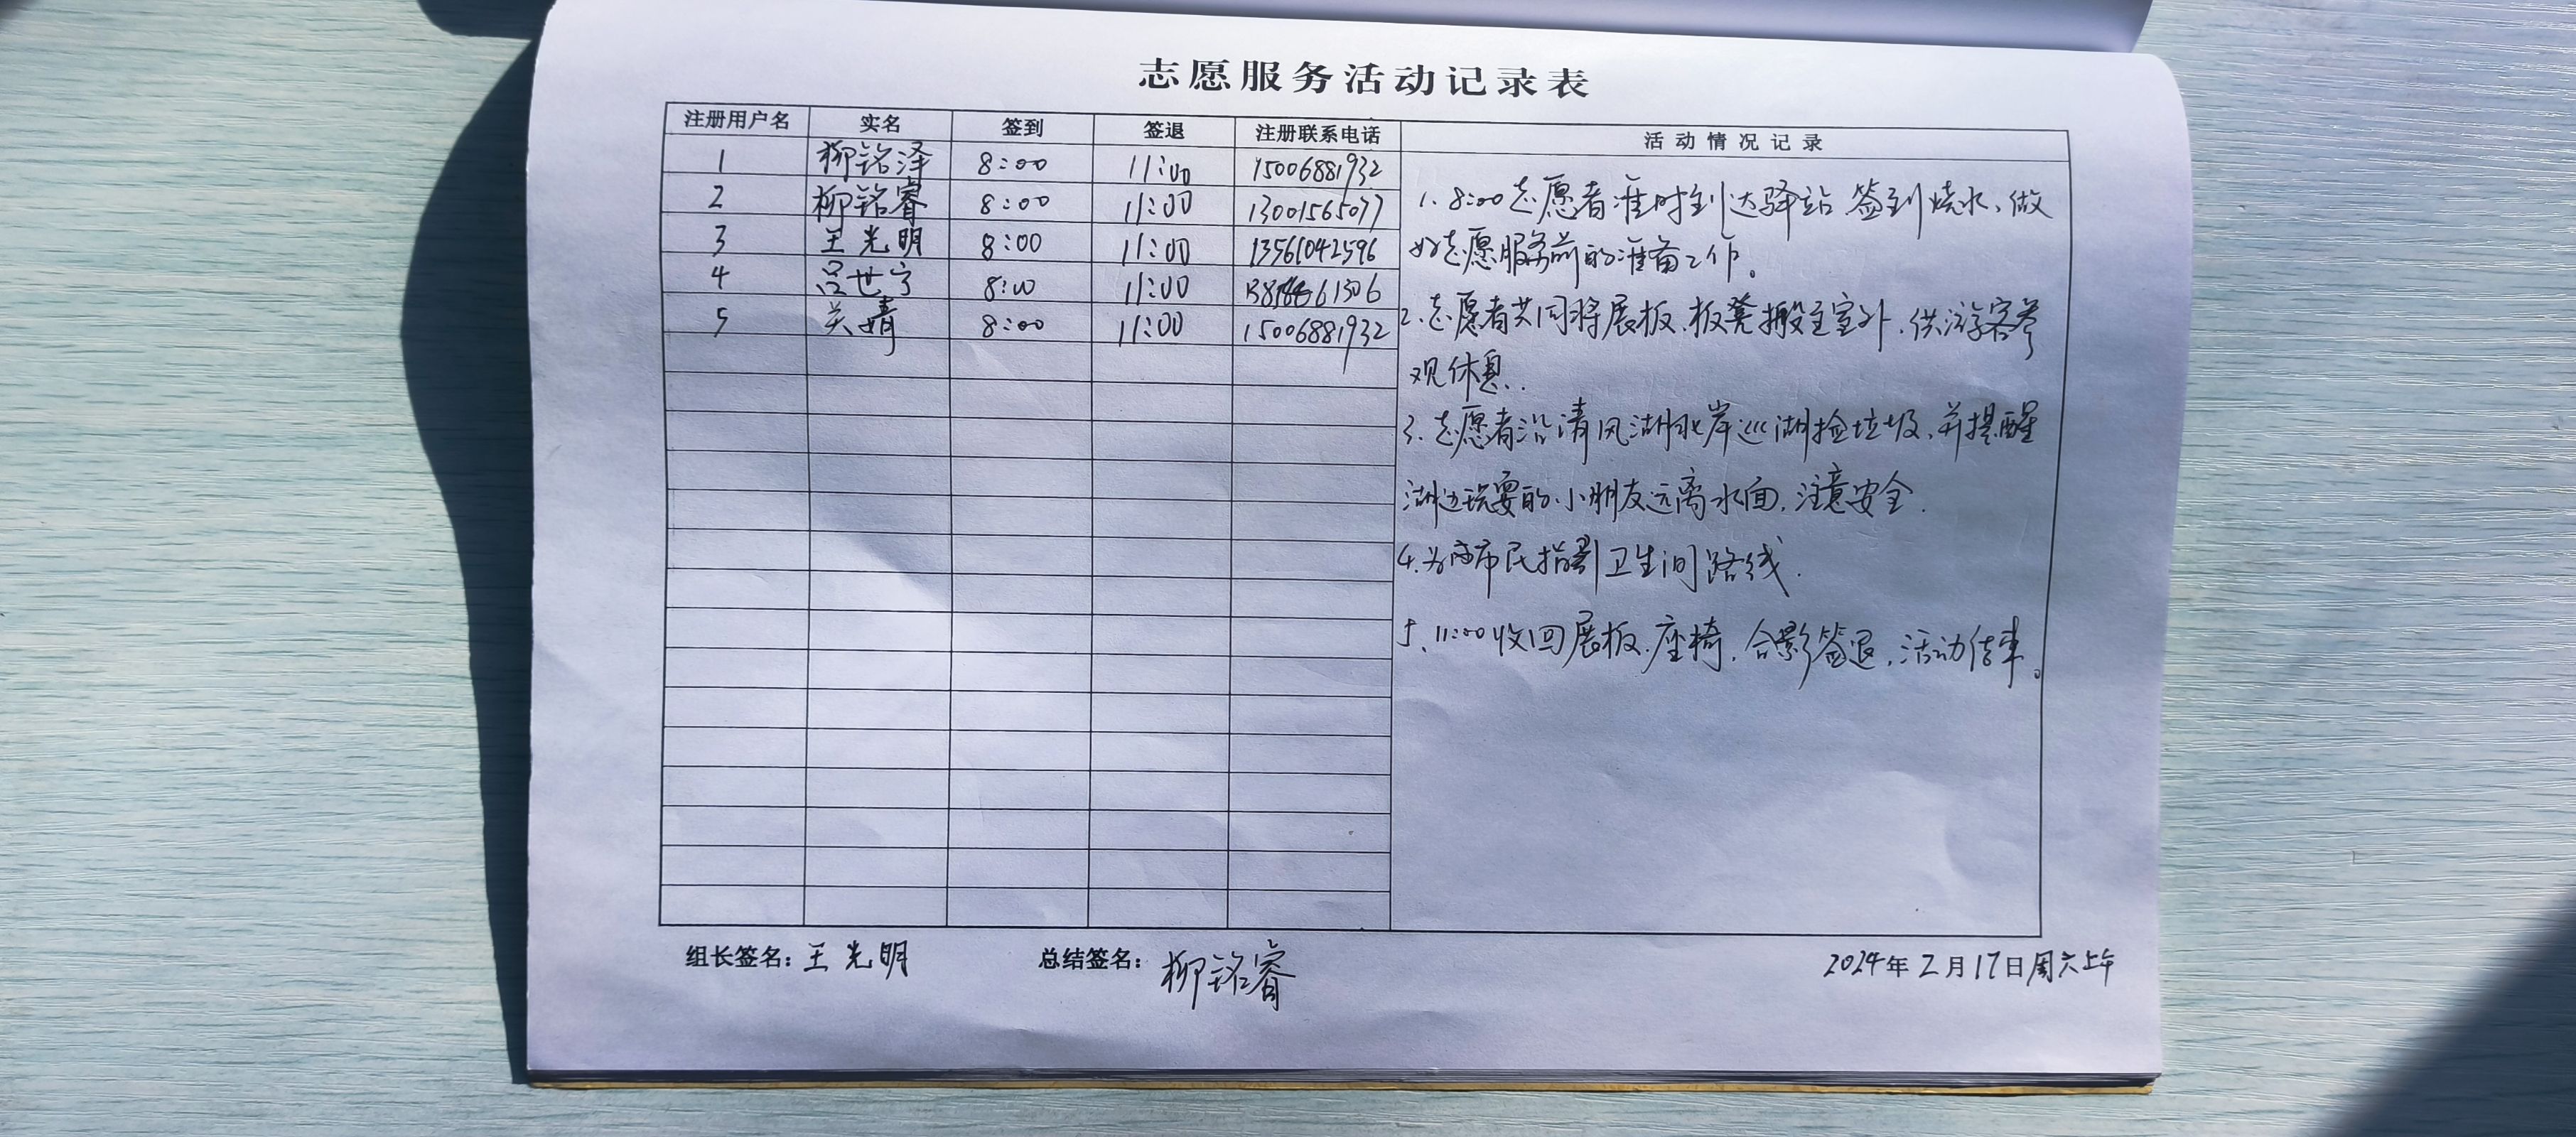 志愿服务活动记录表
注册用户名 实名 签到 签退 注册联系电话 活动情况记录
1 柳铭泽 8:00 11:00 15006881932
2 柳铭睿 8:00 11:00 13001565077
3 王光明 8:00 11:00 13561042596
4 吕世宁 8:00 11:00
5 关婧 8:00 11:00 15006881932
1. 8:00志愿者准时到达驿站签到烧水、做
好志愿服务前的准备工作。
2.志愿者共同将展板、板凳搬至室外,供游客参
观休息.
3.志愿者沿清风湖北岸巡湖捡垃圾,并提醒
湖边玩耍的小朋友远离水面,注意安全.
4.为市民指引卫生间路线.
5、11:00收回展板、座椅,合影签退,活动结束。
组长签名:王光明 总结签名:柳铭睿 2024年2月17日周六上午